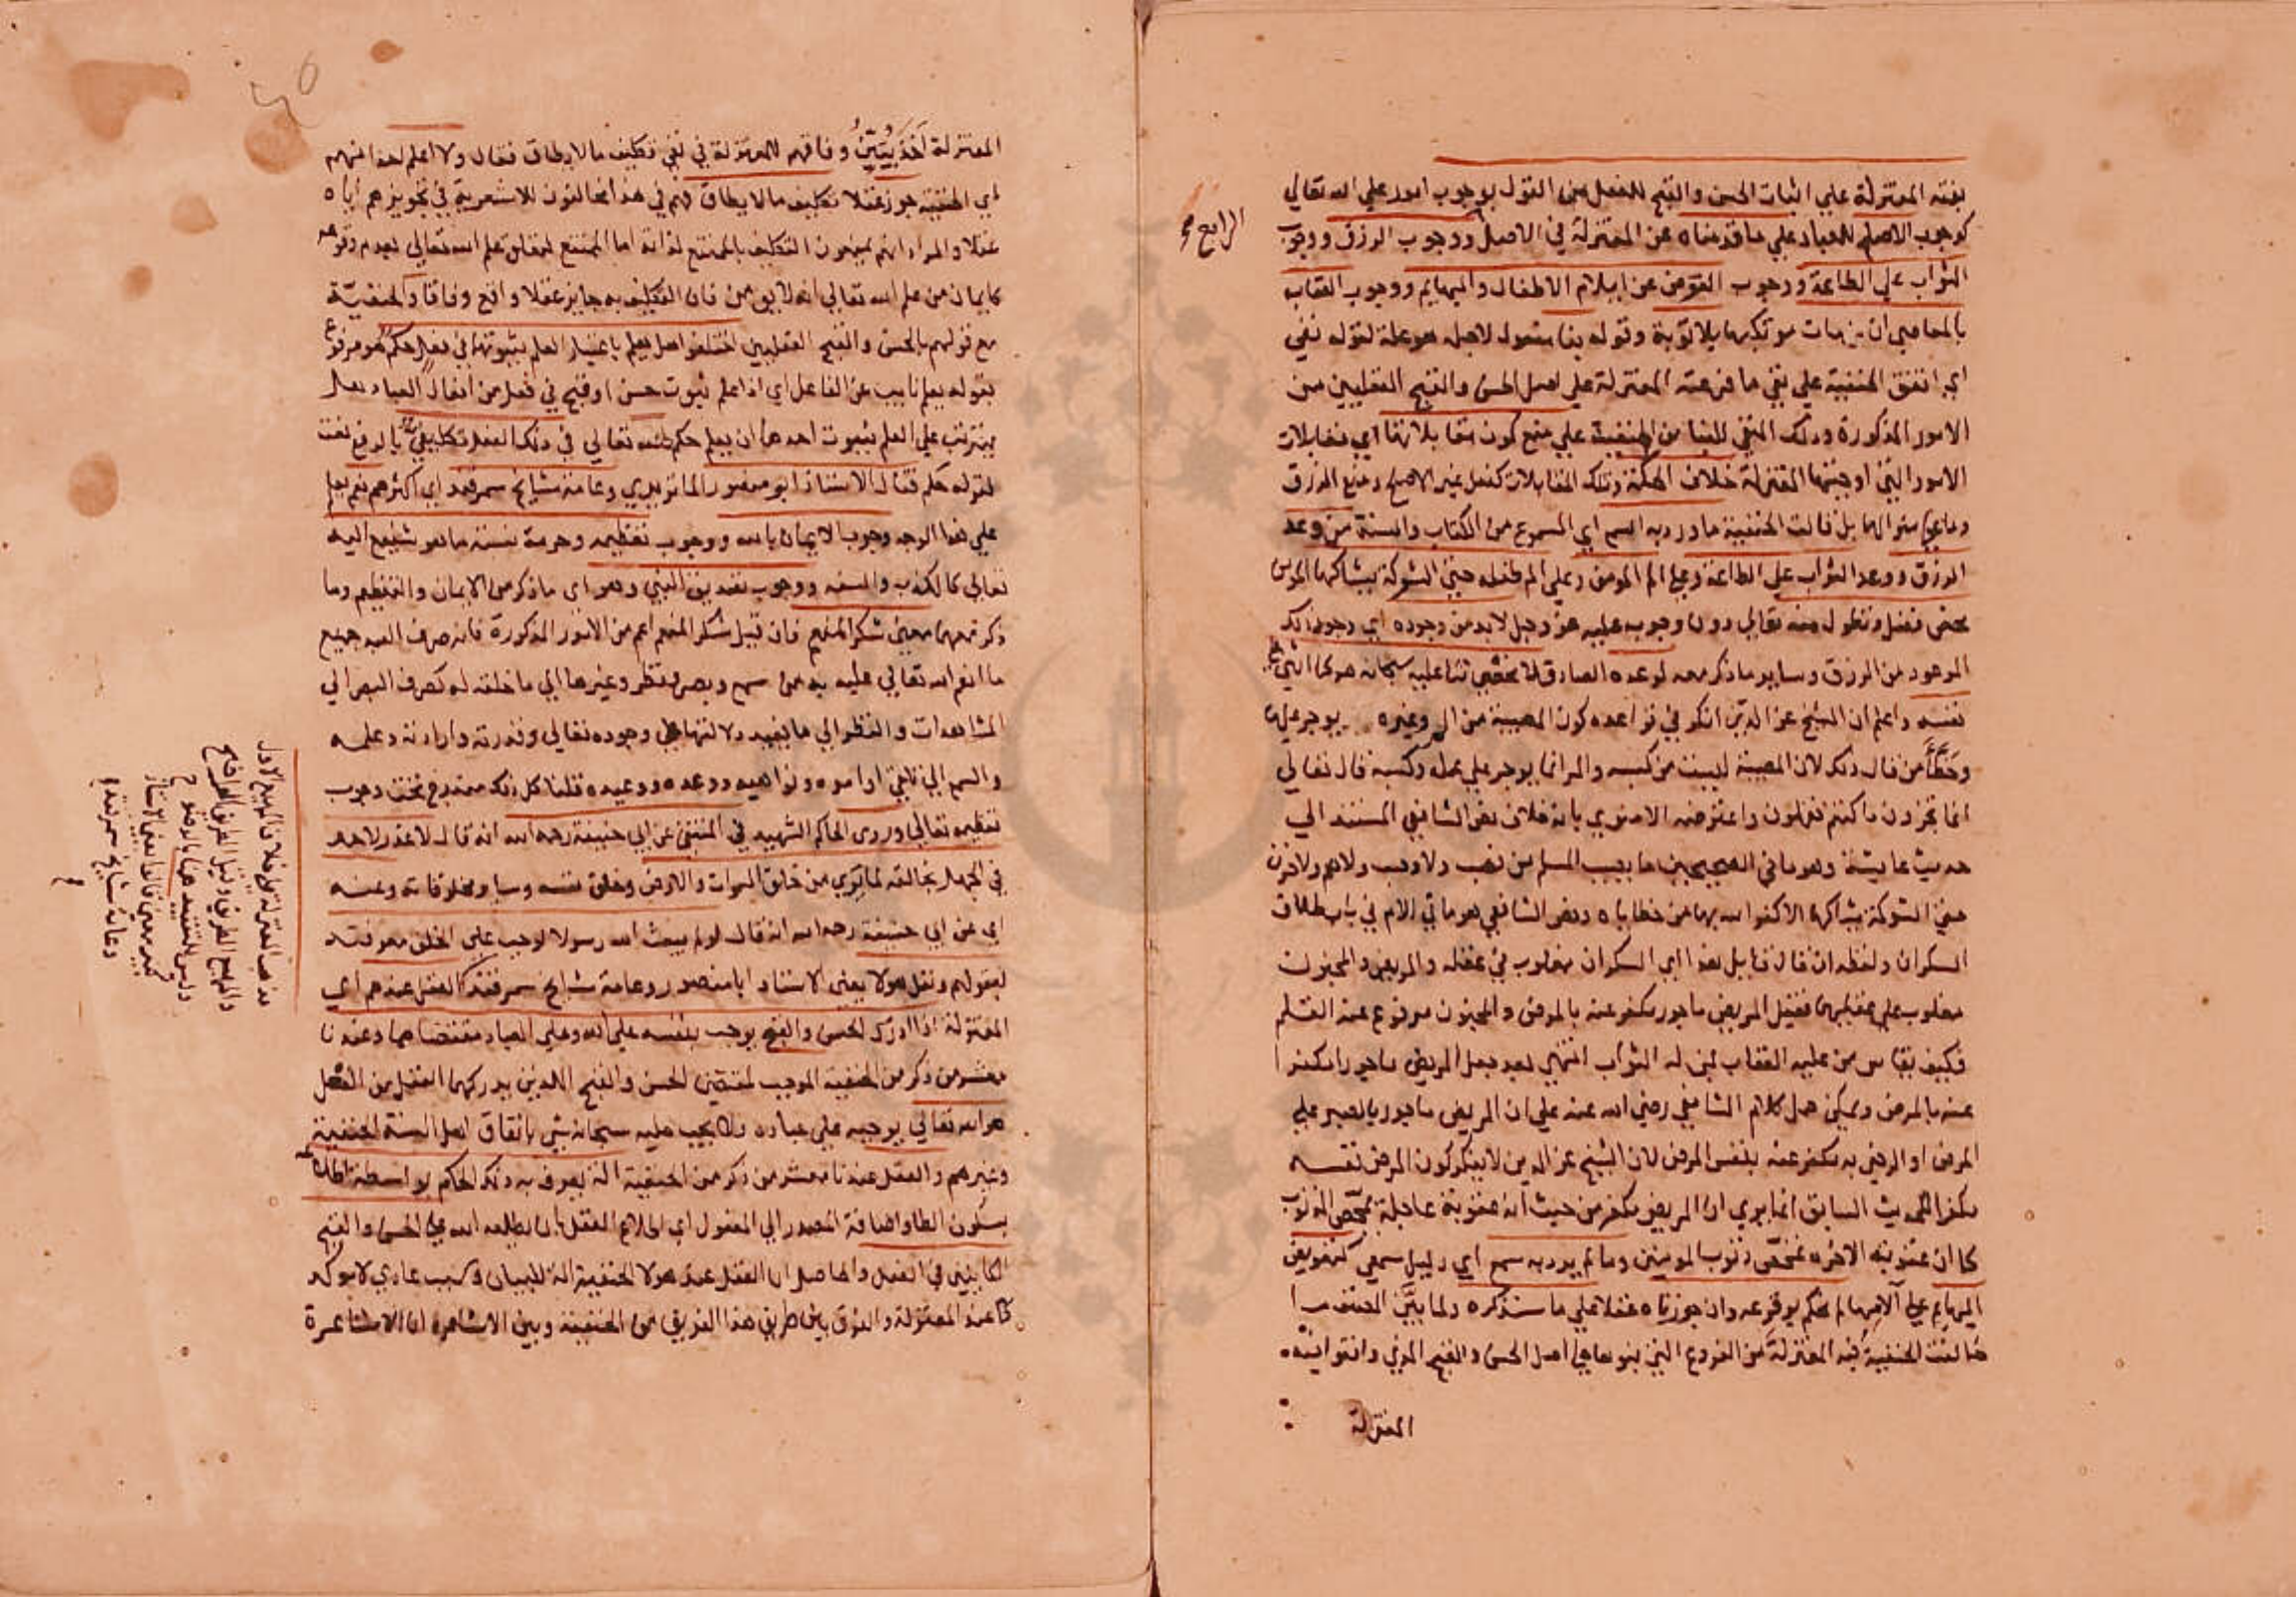 بنته المعتزلة علي اثبات الحسن والقبح للفعل من القول بوجوب امور علي الله تعالي
كوجوب الاصلح للعباد علي ما قدمناه عن المعتزلة في الاصل ووجوب الرزق ووجوب
الثواب علي الطاعة ووجوب العوض عن ايلام الاطفال والبهايم ووجوب العقاب
بالمعاصي ان مات مرتكبها بلا توبة وقوله بنا مفعول لاجله هو علة لقوله نفي
اي اتفق الحنفية علي نفي ما فرعته المعتزلة علي اصل الحسن والقبح العقليين من
الامور المذكورة وذلك النفي للبنا من الحنفية علي منع كون مقابلاتها اي مقابلات
الامور التي اوجبتها المعتزلة خلاف الحكمة وتلك المقابلات كفعل غير الاصلح ومنع الرزق
وما علي منوالهما بل قالت الحنفية ما ورد به السمع اي المسموع من الكتاب والسنة من وعد
الرزق ووعد الثواب علي الطاعة وعلي الم المومن وعلي الم طفله حتي الشوكة يشاكها المومن
محض فضل وتطول منه تعالي دون وجوب عليه عز وجل لابد من وجوده اي وجود ذلك
الموعود من الرزق وساير ما ذكر معه لوعده الصادق لا نحصي ثنا عليه سبحانه هو كما اثني علي
نفسه واعلم ان الشيخ عز الدين انكر في قواعده كون المصيبة من الم وغيره يوجر عليها
وخطأ من قال ذلك لان المصيبة ليست من كسبه والمرا انما يوجر علي عمله وكسبه قال تعالي
انما تجزون ما كنتم تعملون واعترضه الاسنوي بانه خلاف نص الشافعي المستند الي
حديث عايشة وهو ما في الصحيحين ما يصيب المسلم من نصب ولا وصب ولا هم ولا حزن
حتي الشوكة يشاكها الا كفر الله بها من خطاياه ونص الشافعي هو ما في الام في باب طلاق
السكران ولفظه ان قال قايل هذا اي السكران مغلوب في عقله والمريض والمجنون
مغلوب علي عقليهما فقيل المريض ماجور مكفر عنه بالمرض والمجنون مرفوع عنه القلم
فكيف يقاس من عليه العقاب بمن له الثواب انتهي بعد جعل المريض ماجورا مكفرا
عنه بالمرض ويمكن حمل كلام الشافعي رضي الله عنه علي ان المريض ماجور بالصبر علي
المرض او الرضي به مكفر عنه بنفس المرض لان الشيخ عز الدين لا ينكر كون المرض نفسه
مكفرا للحديث السابق انما يري ان المريض مكفر من حيث انه عقوبة عاجلة تمحص الذنوب
كما ان عقوبته الاخره تمحص ذنوب المومنين وما لم يرد به سمع اي دليل سمعي كتعويض
البهايم علي آلامها لم نحكم بوقوعه وان جوزناه عقلا علي ما سنذكره ولما بيَّن المصنف ما
خالفت الحنفية فيه المعتزلة من الفروع التي بنوها علي اصل الحسن والقبح الذي وافقوا فيه
المعتزلة
الرابع
المعتزلة اخذ يبين وفاقهم للمعتزلة في نفي تكليف ما لا يطاق فقال ولا اعلم احدا منهم
اي الحنفية جوز عقلا تكليف ما لا يطاق فهم في هذا مخالفون للاشعرية في تجويزهم اياه
عقلا والمراد انهم يمنعون التكليف بالممتنع لذاته اما الممتنع لتعلق علم الله تعالي بعدم وقوعه
كايمان من علم الله تعالي انه لا يومن فان التكليف به جايز عقلا واقع وفاقا والحنفيّة
مع قولهم بالحسن والقبح العقليين اختلفوا هل يعلم باعتبار العلم بثبوتهما في فعل حكم هو مرفوع
بقوله يعلم نايب عن الفاعل اي اذا علم ثبوت حسن او قبح في فعل من افعال العباد هل
يترتب علي العلم بثبوت احدهما ان يعلم حكم لله تعالي في ذلك الفعل تكليفي بالرفع نعت
لقوله حكم فقال الاستاذ ابو منصور الماتريدي وعامة مشايخ سمرقند اي اكثرهم نعم يعلم
علي هذا الوجه وجوب الايمان بالله ووجوب تعظيمه وحرمة نسبة ما هو شنيع اليه
تعالي كالكذب والسفه ووجوب تصديق النبي وهو اي ما ذكر من الايمان والتعظيم وما
ذكر معهما معني شكر المنعم فان قيل شكر المنعم اعم من الامور المذكورة فانه صرف العبد جميع
ما انعم الله تعالي عليه به من سمع وبصر ونظر وغيرها الي ما خلقه له كصرف البصر الي
المشاهدات والنظر الي ما يفيد دلالتها علي وجوده تعالي وقدرته وارادته وعلمه
والسمع الي تلقي اوامره ونواهيه ووعده ووعيده قلنا كل ذلك مندرج تحت وجوب
تعظيمه تعالي وروي الحاكم الشهيد في المنتقي عن ابي حنيفة رحمه الله انه قال لا عذر لاحد
في الجهل بخالقه لما يري من خلق السموات والارض وخلق نفسه وساير مخلوقاته وعنه
اي عن ابي حنيفة رحمه الله انه قال لو لم يبعث الله رسولا لوجب علي الخلق معرفته
بعقولهم ونقل هولا يعني الاستاذ ابا منصور وعامة مشايخ سمرقند العقل عندهم اي
المعتزلة اذا ادرك الحسن والقبح يوجب بنفسه علي الله وعلي العباد مقتضاهما وعندنا
معشر من ذكر من الحنفية الموجب لمقتضي الحسن والقبح اللذين يدركهما العقل من الفعل
هو الله تعالي يوجبه علي عباده ولا يجب عليه سبحانه شي باتفاق اهل السنة الحنفية
وغيرهم والعقل عندنا معشر من ذكر من الحنفية آلة يعرف به ذلك الحكم بواسطة اطلاعه
بسكون الطا واضافة المصدر الي المفعول اي اطلاع العقل بان يطلعه الله علي الحسن والقبح
الكاينين في الفعل والحاصل ان العقل عند هولا الحنفية آلة للبيان وسبب عادي لا مولد
كما عند المعتزلة والفرق بين طريق هذا الفريق من الحنفية وبين الاشاعرة ان الاشاعرة